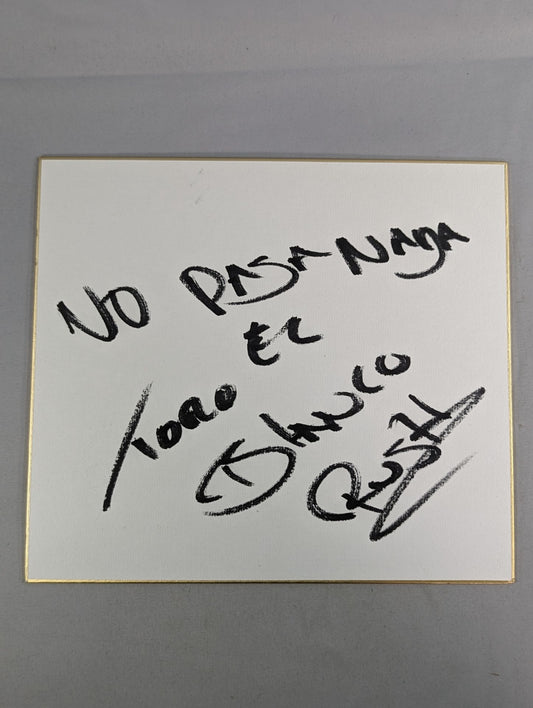 NO PASA NADA
EL
TORO BLANCO
RUSH